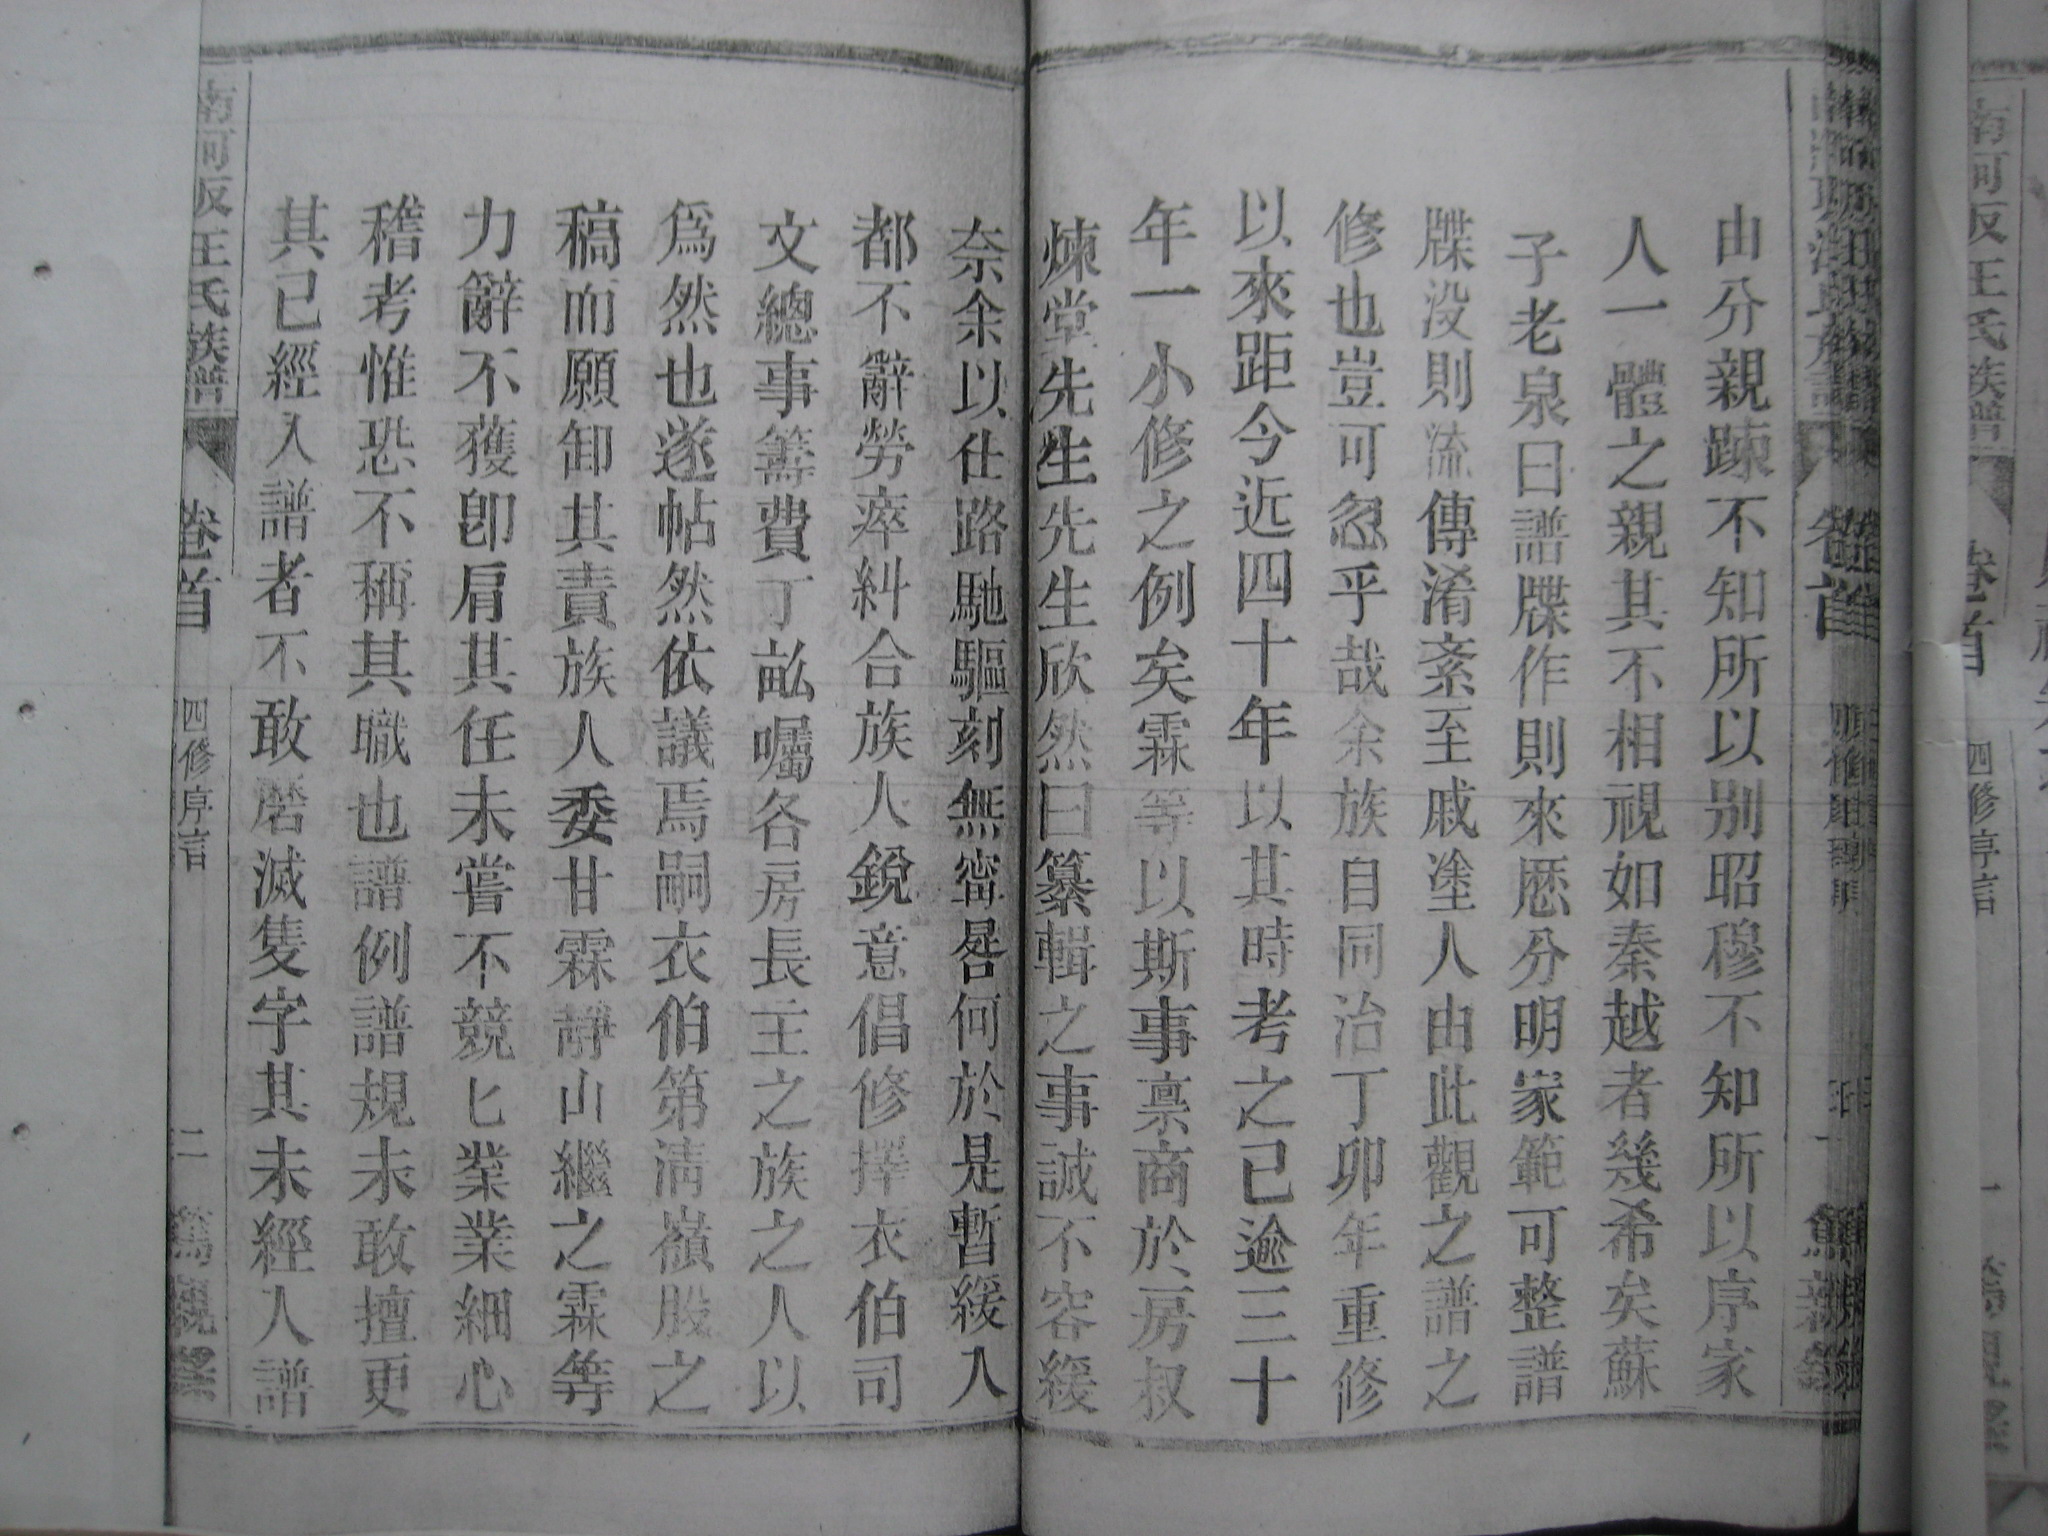 由分親踈不知所以别昭穆不知所以序家
人一體之親其不相視如秦越者幾希矣蘇
子老泉曰譜牒作則來厯分明家範可整譜
牒没則流傳淆紊至戚塗人由此觀之譜之
修也豈可忽乎哉余族自同治丁卯年重修
以來距今近四十年以其時考之已逾三十
年一小修之例矣霖等以斯事禀商於房叔
煉堂先生先生欣然曰纂輯之事誠不容緩
奈余以仕路馳驅刻無甯晷何於是暫緩人
都不辭勞瘁糾合族人銳意倡修擇衣伯司
文總事籌費丁畝囑各房長主之族之人以
爲然也遂帖然依議焉嗣衣伯第清嶺股之
稿而願卸其責族人委甘霖靜山繼之霖等
力辭不獲卽肩其任未嘗不兢匕業業細心
稽考惟恐不稱其職也譜例譜規未敢擅更
其已經入譜者不敢磨滅隻字其未經人譜
王氏族譜
卷首
四修序言
二